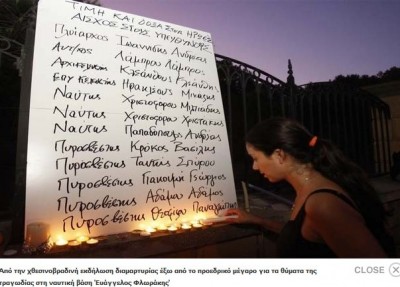 ΤΙΜΗ ΚΑΙ ΔΟΞΑ ΣΤΟΥΣ ΗΡΩΕΣ
ΑΙΣΧΟΣ ΣΤΟΥΣ ΥΠΕΥΘΥΝΟΥΣ
Πλοίαρχος Ιωαννίδης Ανδρέας
Αντ/ρχος Λάμπρου Λάμπρος
Αρχικελευστής Κλεάνθους Κλεάνθης
Επικελευστής Ηρακλέους Μιχάλης
Ναύτης Χριστοφόρου Μιλτιάδης
Ναύτης Χριστοφόρου Χριστάκης
Ναύτης Παπαδόπουλος Αντώνης
Πυροσβέστης Κρόκος Βασίλης
Πυροσβέστης Ταντής Σπύρου
Πυροσβέστης Γιακουμή Γεώργιος
Πυροσβέστης Αδάμου Αδάμος
Πυροσβέστης Θεοφίλου Παναγιώτης
CLOSE X
Από την χθεσινοβραδινή εκδήλωση διαμαρτυρίας έξω από το προεδρικό μέγαρο για τα θύματα της
τραγωδίας στη ναυτική βάση 'Ευάγγελος Φλωράκης'